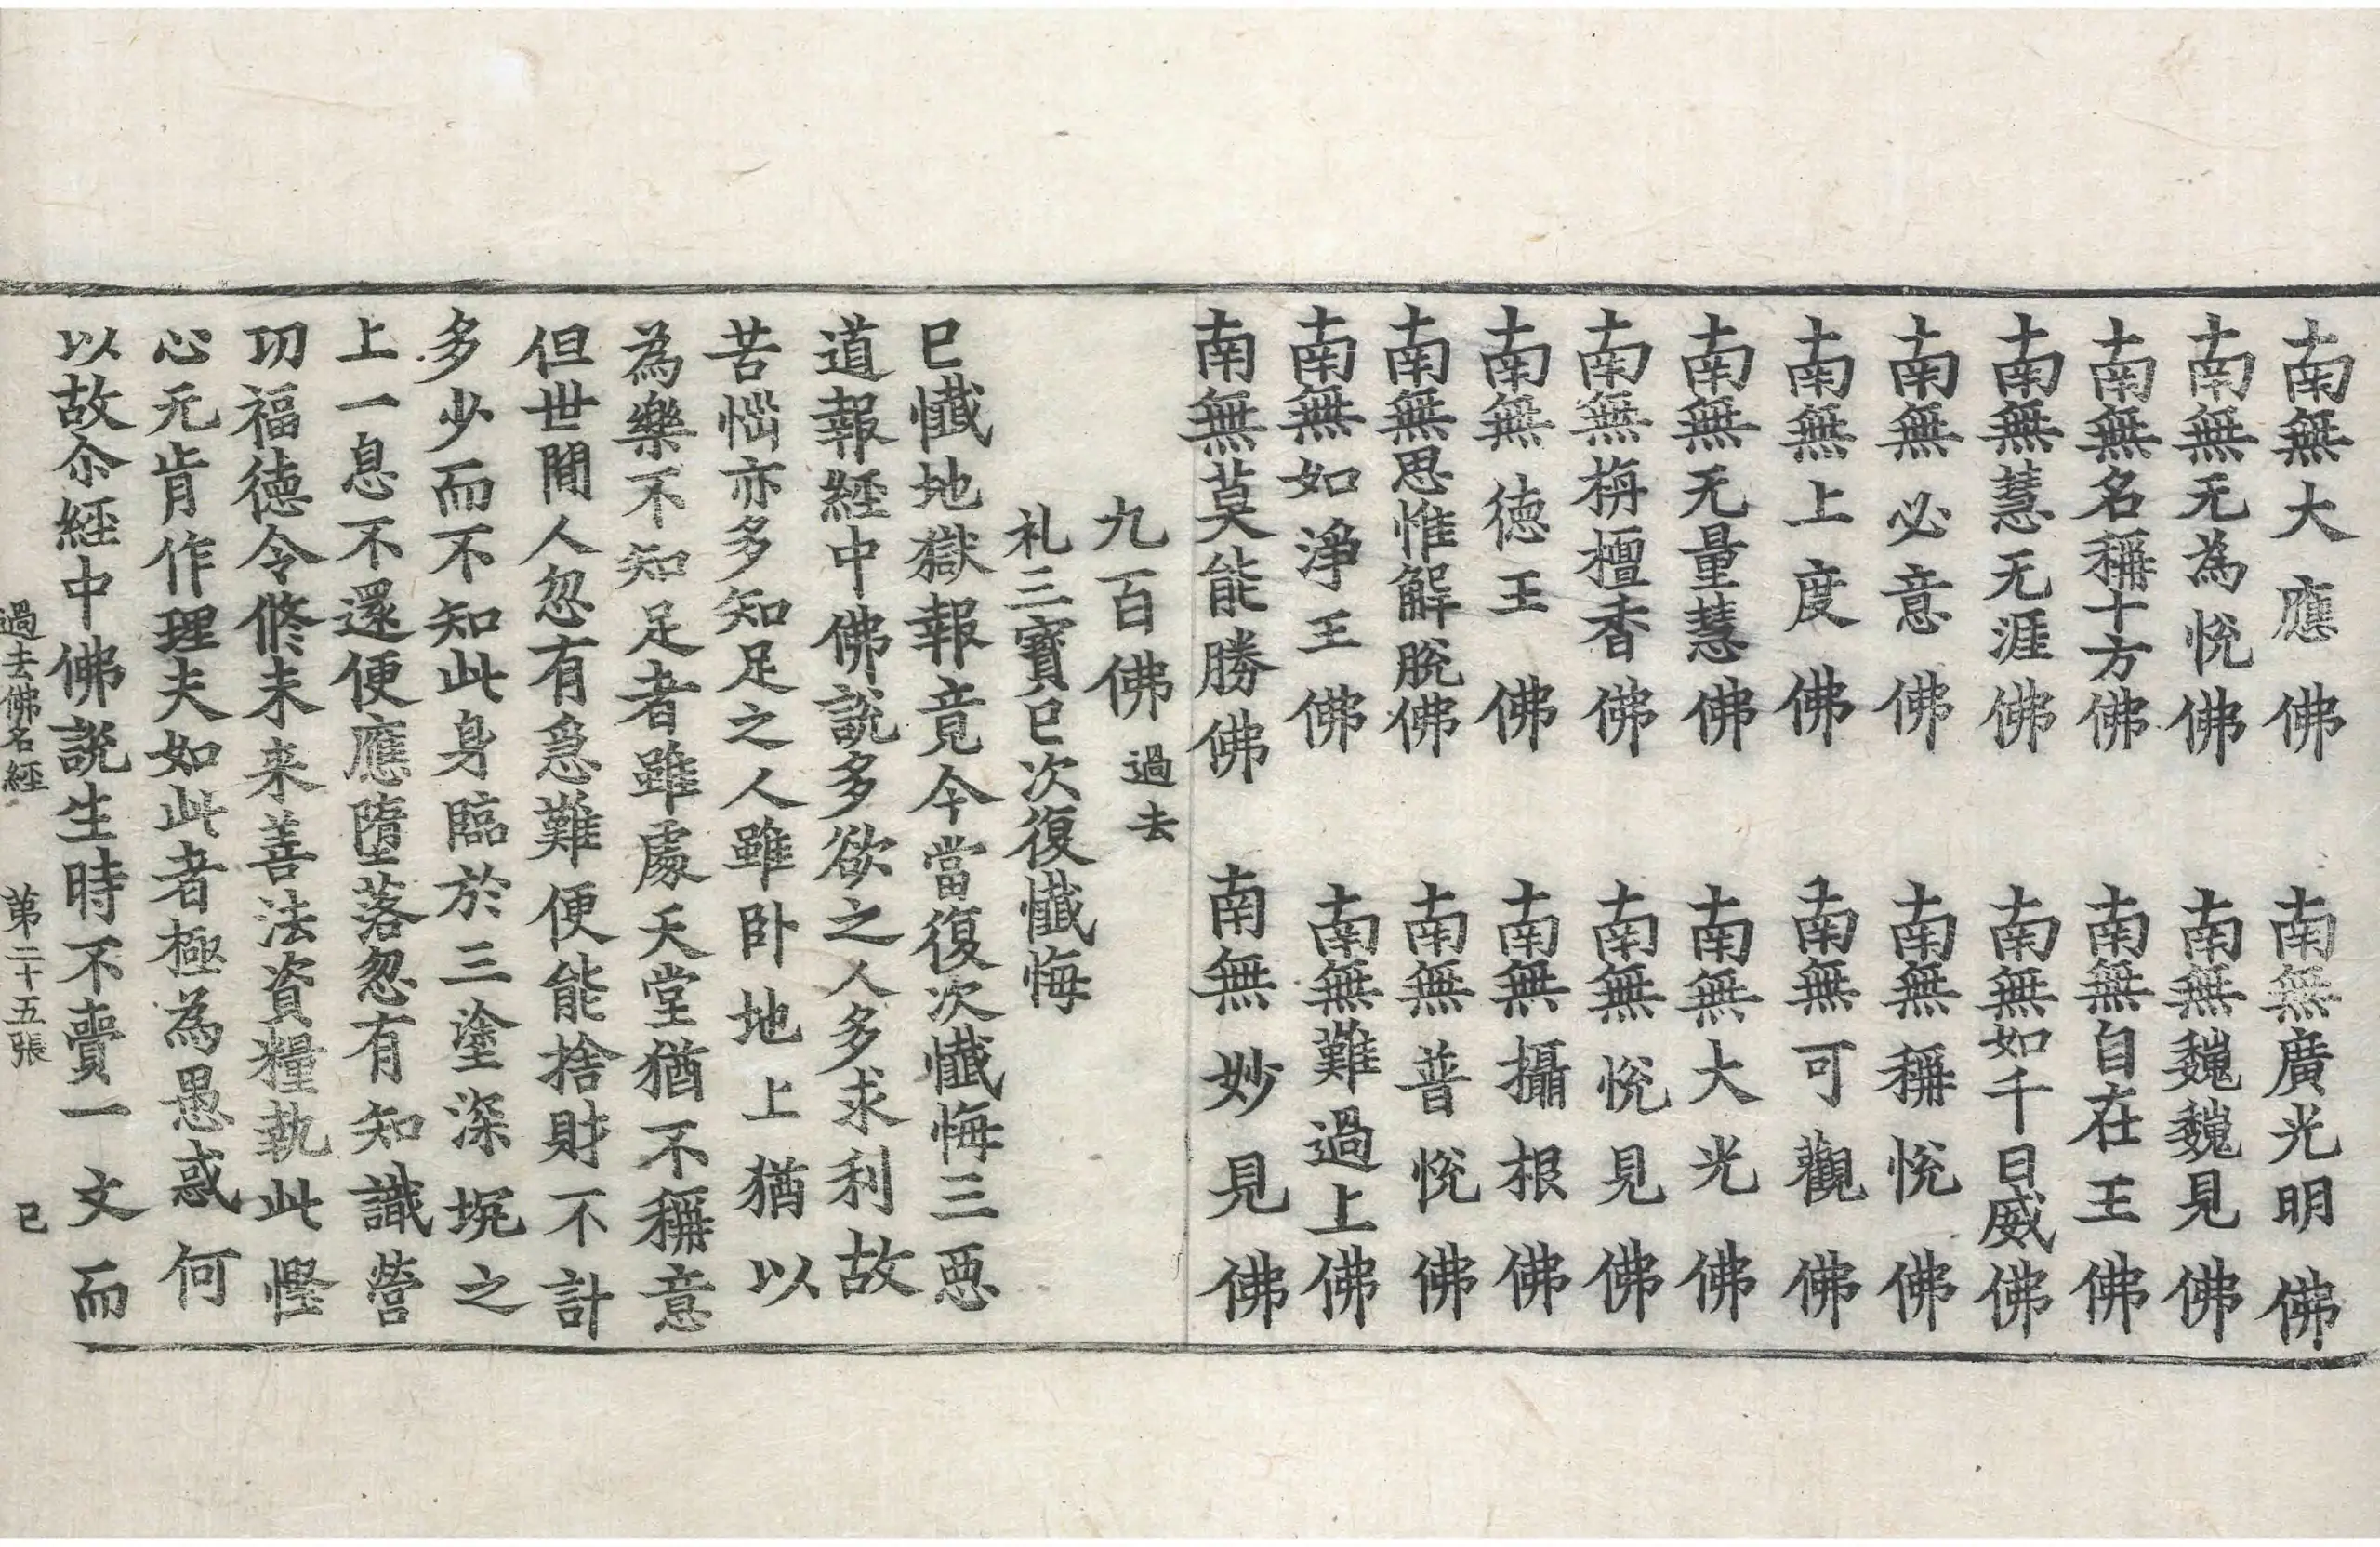 南無大應佛　南無廣光明佛
南無无為悅佛　南無魏魏見佛
南無名稱十方佛　南無自在王佛
南無慧无涯佛　南無如千日威佛
南無必意佛　南無稱悅佛
南無上度佛　南無可觀佛
南無无量慧佛　南無大光佛
南無栴檀香佛　南無悅見佛
南無德王佛　南無攝根佛
南無思惟解脫佛　南無普悅佛
南無如淨王佛　南無難過上佛
南無莫能勝佛　南無妙見佛
九百佛過去
礼三寶已次復懺悔
已懺地獄報竟今當復次懺悔三惡
道報經中佛說多欲之人多求利故
苦惱亦多知足之人雖卧地上猶以
為樂不知足者雖處天堂猶不稱意
但世間人忽有急難便能捨財不計
多少而不知此身臨於三塗深坑之
上一息不還便應墮落忽有知識營
功福德令修未来善法資糧執此慳
心无肯作理夫如此者極為愚惑何
以故尒經中佛說生時不賷一文而
過去佛名經　第二十五張　已